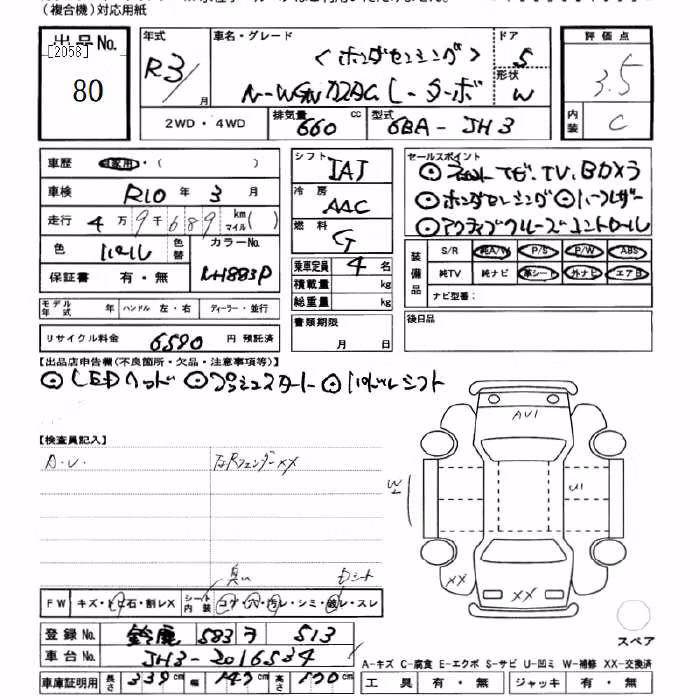 (複合機)対応用紙
出品No. [2058] 80
年式 R3/ 月
車名・グレード <ホンダセンシング>
N-WGNカスタム L-ターボ
ドア 5
形状 W
評価点 3.5
内装 C
2WD・4WD 排気量 660 cc 型式 6BA-JH3
車歴 自家用・( )
車検 R10 年 3 月
走行 4 万 9 千 6 8 9 km マイル ( )
色 パール 色替 カラーNo. NH883P
保証書 有・無
モデル年式 年 ハンドル 左・右 ディーラー・並行
リサイクル料金 6590 円 預託済
シフト IAT
冷房 AAC
燃料 G
乗車定員 4 名
積載量 kg
総重量 kg
書類期限 月 日
セールスポイント
ナビ.TV.Bカメラ
ホンダセンシング
アクティブクルーズコントロール
装備品 S/R 純A/W P/S P/W ABS
純TV 純ナビ 革シート 外ナビ エアB
ナビ型番:
後日品
【出品店申告欄(不良箇所・欠品・注意事項等)】
LEDヘッド プッシュスタート パドルシフト
【検査員記入】
A.U.
右Rフェンダー××
AU1
W1
U1
XX
XX
臭い
Dシート
FW キズ・トビ石・割レX シート内装 コゲ・穴・汚レ・シミ・破レ・スレ
登録No. 鈴鹿 583 ヲ 513
車台No. JH3-2016534
車庫証明用 長さ 339 cm 幅 147 cm 高さ 170 cm
スペア
A-キズ C-腐食 E-エクボ S-サビ U-凹ミ W-補修 XX-交換済
工具 有・無 ジャッキ 有・無